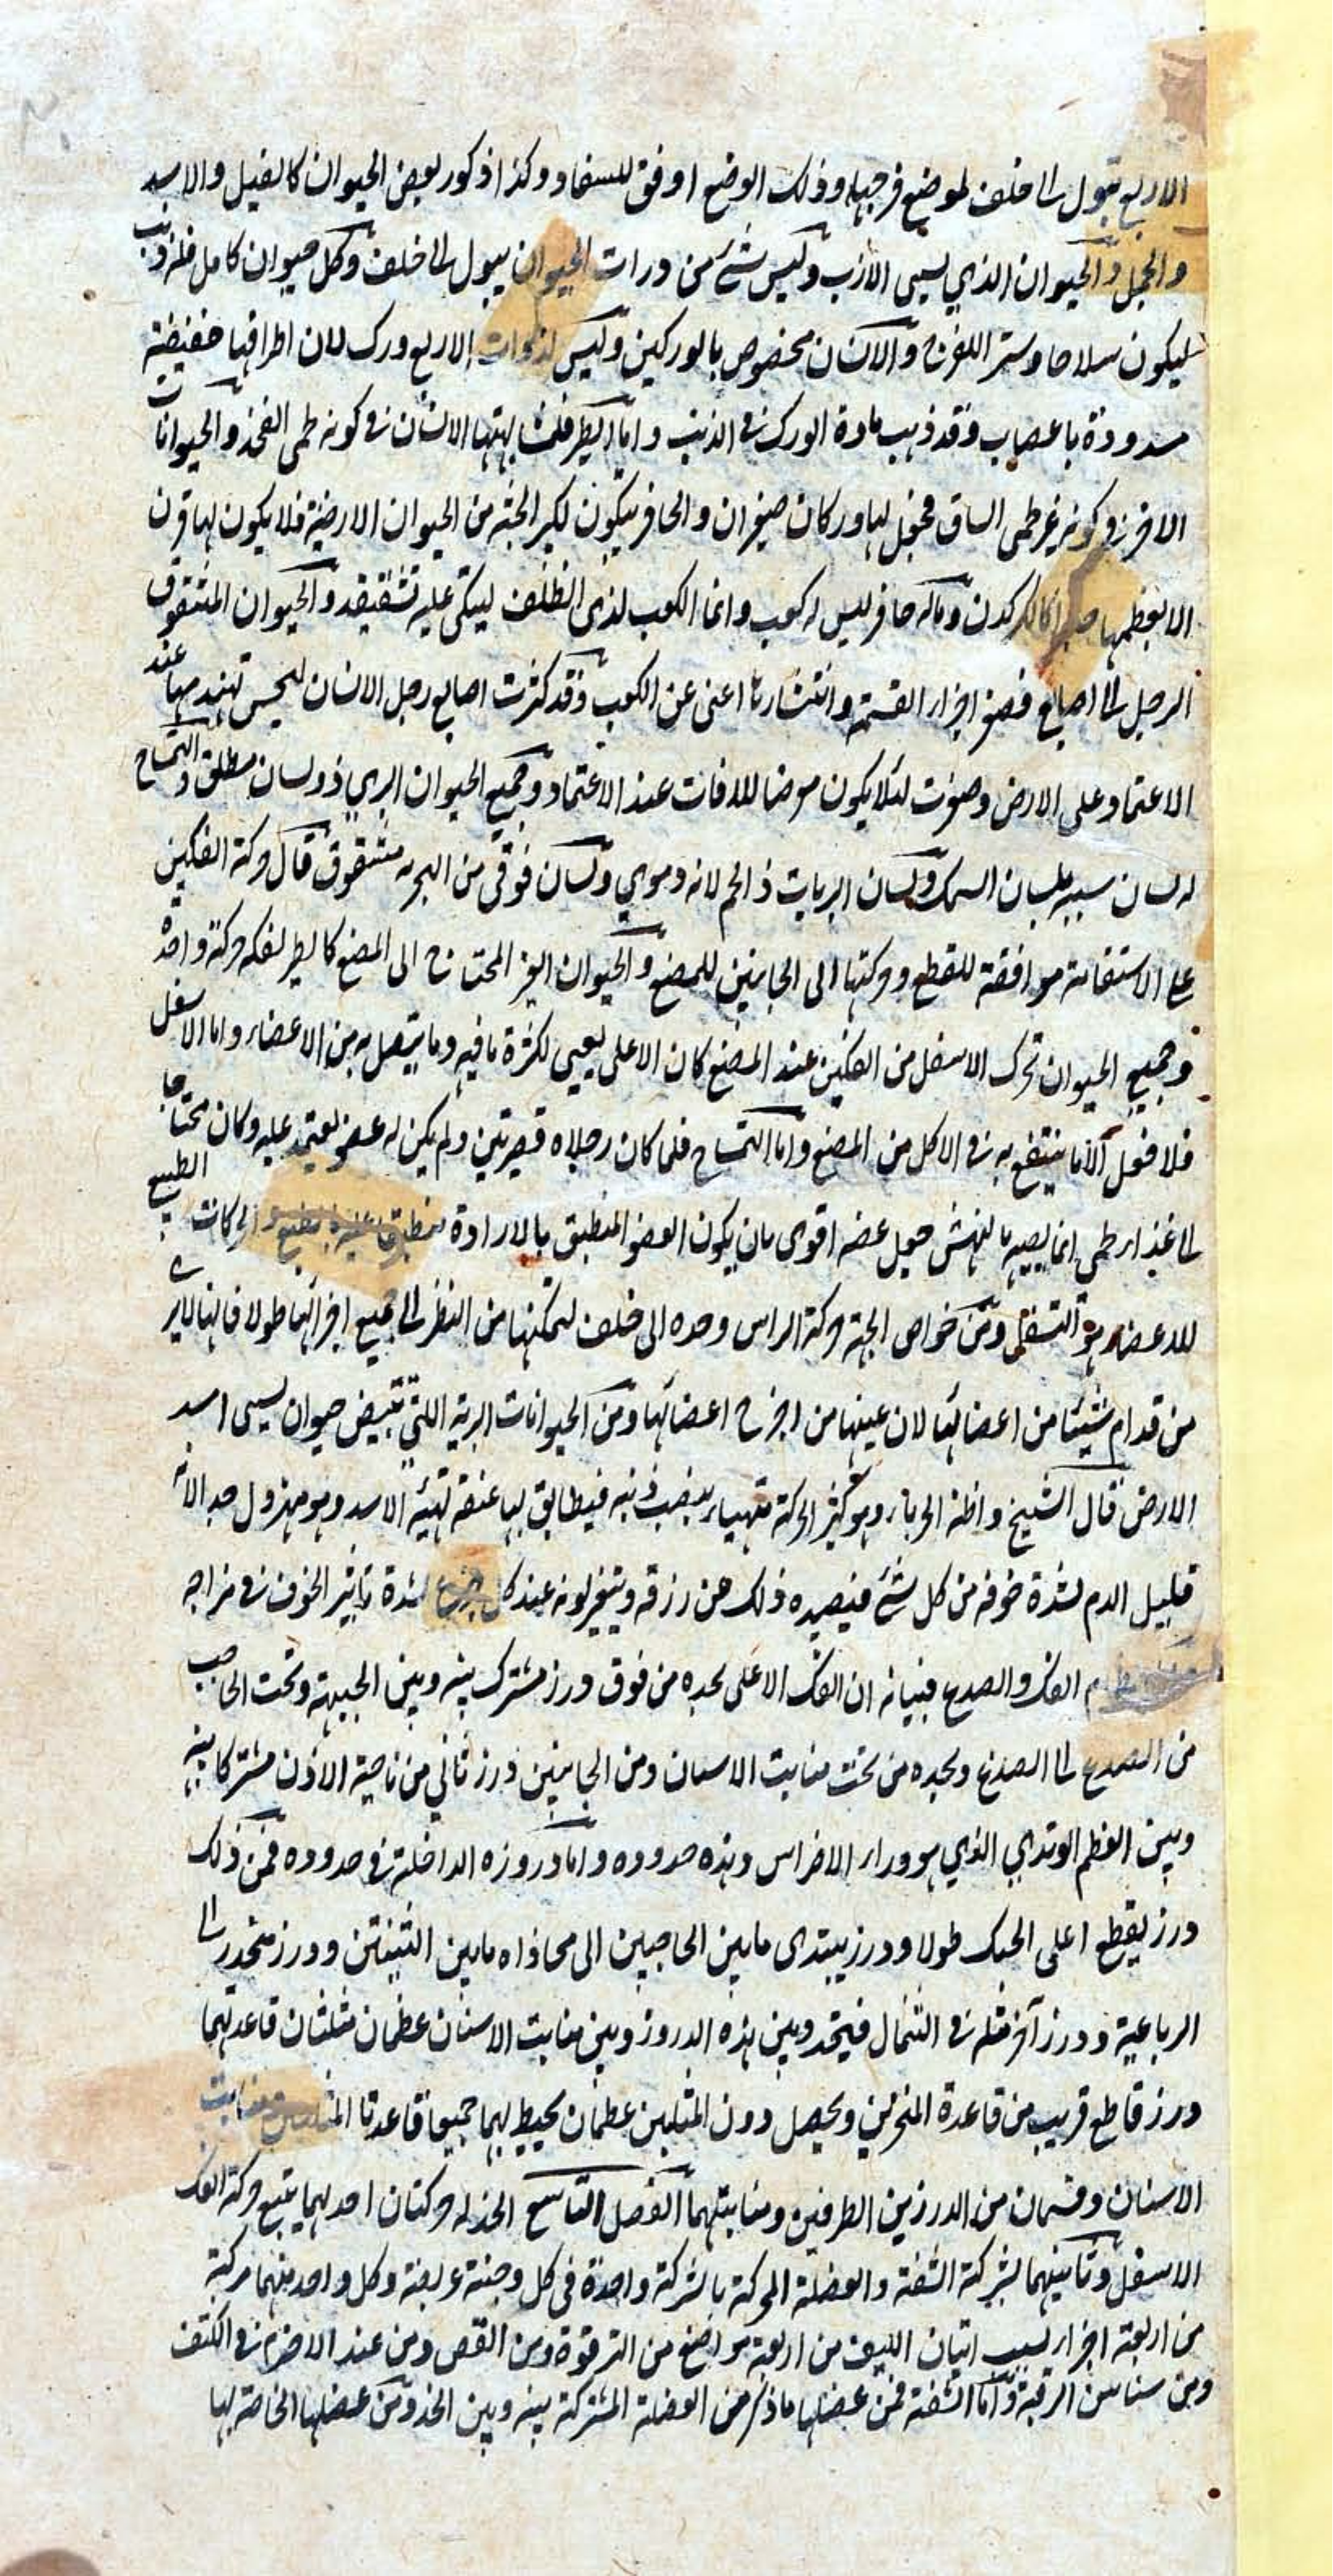 الاربع تبول الى خلف لموضع فرجها وذلك الوضع اوفق للسفاد وكذا ذكور بعض الحيوان كالفيل والاسد
والجمل والحيوان الذي يسمى الارنب وليس شئ من ذوات الحيوان يبول الى خلف وكل حيوان كامل فله ذنب
ليكون سلاحا وستر اللفرج والانسان مخصوص بالوركين وليس لذوات الاربع ورك لان اطرافها خفيفة
مسدودة باعصاب وقد ذهب مادة الورك في الذنب واما الطير فلمشابهتها الانسان في كونه لحمى الفخذ والحيوانات
الاخر في كونه غير لحمى الساق فجعل لها وركان صغيران والحافر يتكون لكبير الجثة من الحيوان الارضية فلا يكون لها قرن
الا بعظمها كالكركدن وماله حافر ليس له كعب وانما الكعب لذى الظلف ليتكى عليه تشقيقه والحيوان المشقوق
الرجل الى اصابع فصغر اجزاء القسمة وانتشارها اغنى عن الكعب وقد كثرت اصابع رجل الانسان ليحسن تهندمها عند
الاعتماد على الارض وصغرت لئلا يكون معرضا للافات عند الاعتماد وجميع الحيوان البري ذو لسان مطلق والتمساح
له لسان شبيه بلسان السمك ولسان البريات ذا لحم لانه دموي ولسان فوقى من البحرية مشقوق قال حركة الفكين
على الاستقامة موافقة للقطع وحركتها الى الجانبين للمضغ والحيوان الغير المحتاج الى المضغ كالطير لفكه حركة واحدة
وجميع الحيوان تحرك الاسفل من الفكين عند المضغ كان الاعلى يعيى لكثرة ما فيه وما يتصل به من الاعضاء واما الاسفل
فلا فعل له الا ما ينتفع به في الاكل من المضغ واما التمساح فلما كان رجلاه قصيرتين ولم يكن له عضو يعتمد عليه وكان محتاجا
الى غذاء لحمى انما يصيبه بالنهش جعل عضه اقوى بان يكون العضو المنطبق بالارادة الحركات الطبيع
للاعضاء هو التسفل ومن خواص الحية حركة الراس وحده الى خلف لتمكنها من النظر الى جميع اجزائها طولا فانها لا يرى
من قدام شيئا من اعضائها لان عينها من اخرج اعضائها ومن الحيوانات البرية اللتى تبيض حيوان يسمى اسد
الارض قال الشيخ واظنه الحرباء وهو كثير الحركة متهيء ينصب ذنبه فيطابق بها عنقه تهيئة الاسد وهو مهزول جدا لانه
قليل الدم لشدة خوفه من كل شئ فيصيده ذلك عن رزقه ويتغير لونه عند كل جزع لشدة تاثير الخوف في مزاجه
الفك والصدع فبيانه ان الفك الاعلى يحده من فوق درز مشترك بينه وبين الجبهة وتحت الحاجب
من الصدع الى الصدغ ويحده من تحت منابت الاسنان ومن الجانبين درز تاتي من ناحية الاذن مشتركا بينه
وبين العظم الوتدي الذي هو وراء الاضراس وهذه حدوده واما دروزه الداخلة في حدوده فمن ذلك
درز يقطع اعلى الحنك طولا ودرز يبتدى مابين الحاجبين الى محاذاه مابين الثنيتين ودرز منحدر الى
الرباعية ودرز آخر مثله في الشمال فيتحد وبين هذه الدروز وبين منابت الاسنان عظمان مثلثان قاعدتهما
درز قاطع قريب من قاعدة المنخرين ويحصل دون المثلثين عظمان يحيط بهما جميعا قاعدتا المثلثين ومنابت
الاسنان وقسمان من الدرزين الطرفين ومنابتهما الفصل التاسع الخد له حركتان احديهما يتبع حركة الفك
الاسفل وثانيهما بشركة الشفة والعضلة المحركة بالشركة واحدة في كل وجنة عريضة وكل واحد منهما مركبة
من اربعة اجزاء بسبب اتيان الليف من اربعة مواضع من الترقوة ومن القص ومن عند الاخرم في الكتف
ومن سناسن الرقبة واما الشفة فمن عضلها ما ذكر من العضلة المشتركة بينه وبين الخد ومن عضلها الخاصة بها